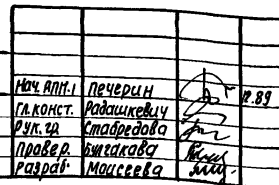 Нач. АПМ.1 Печерин 12.89
Гл. конст. Радашкевич
Рук. гр. Стабредова
Провер. Булгакова
Разраб. Моисеева